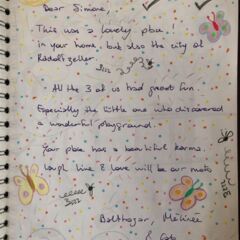 Dear Simone,
This was a lovely place
in your home, but also the city of
Radolfzeller.
All the 3 of us had great fun.
Especially the little one who discovered
a wonderful playground.
Your place has a beautiful karma.
Laugh line & love will be our moto
Balthazar,
&